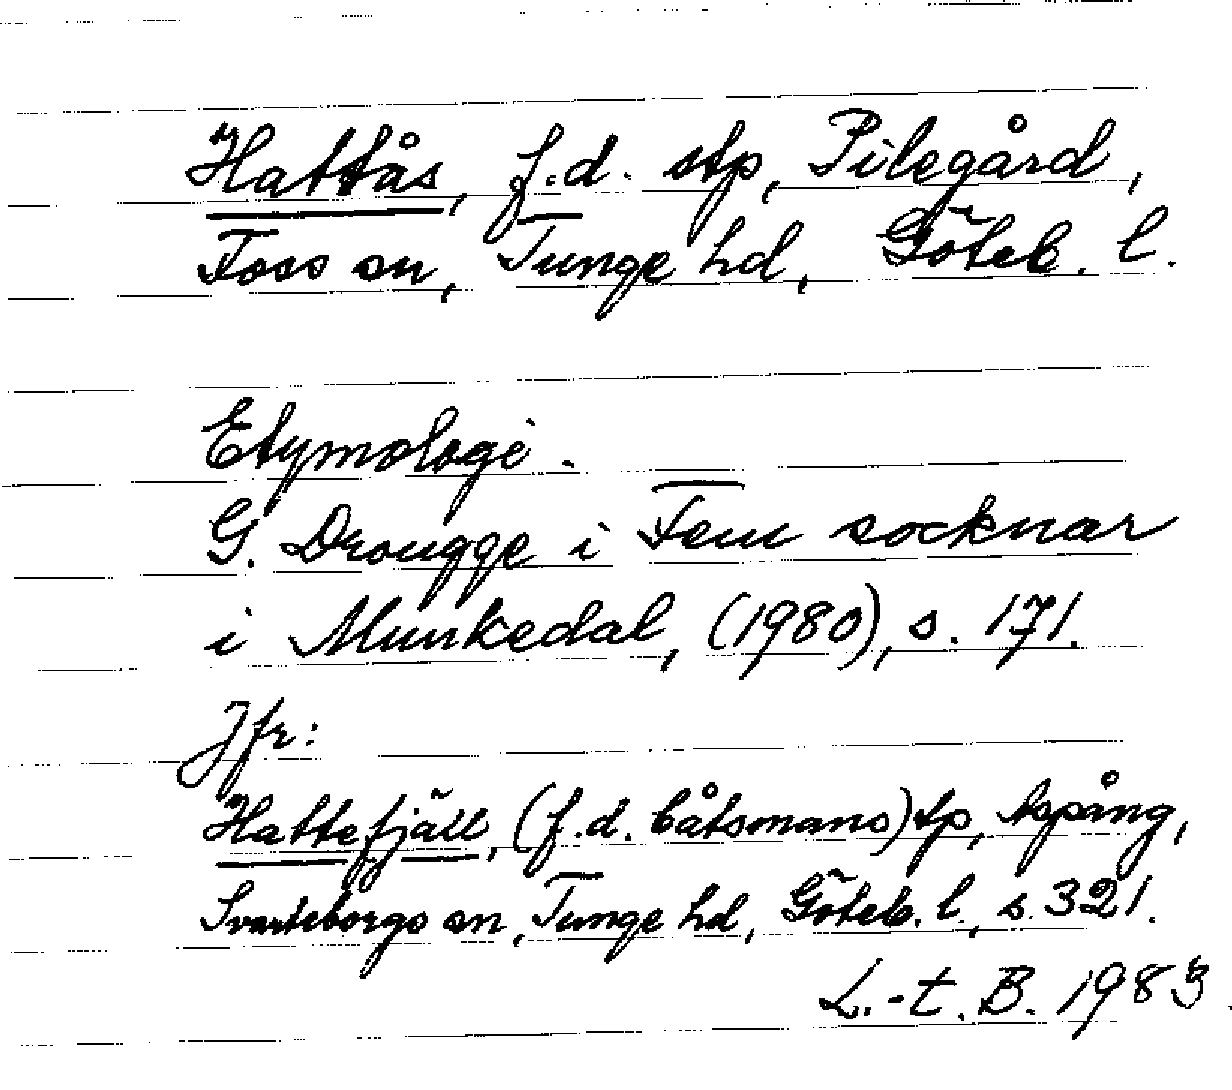 Hattås, f.d. stp, Pilegård,
Foss sn, Tunge hd, Göteb. l.
Etymologi.
G. Drougge i Fem socknar
i Munkedal, (1980), s. 171.
Jfr:
Hattefjäll, (f.d. båtsmans)tp, Aspång,
Svarteborgs sn, Tunge hd, Göteb. l., s. 321.
L.-t. B. 1983